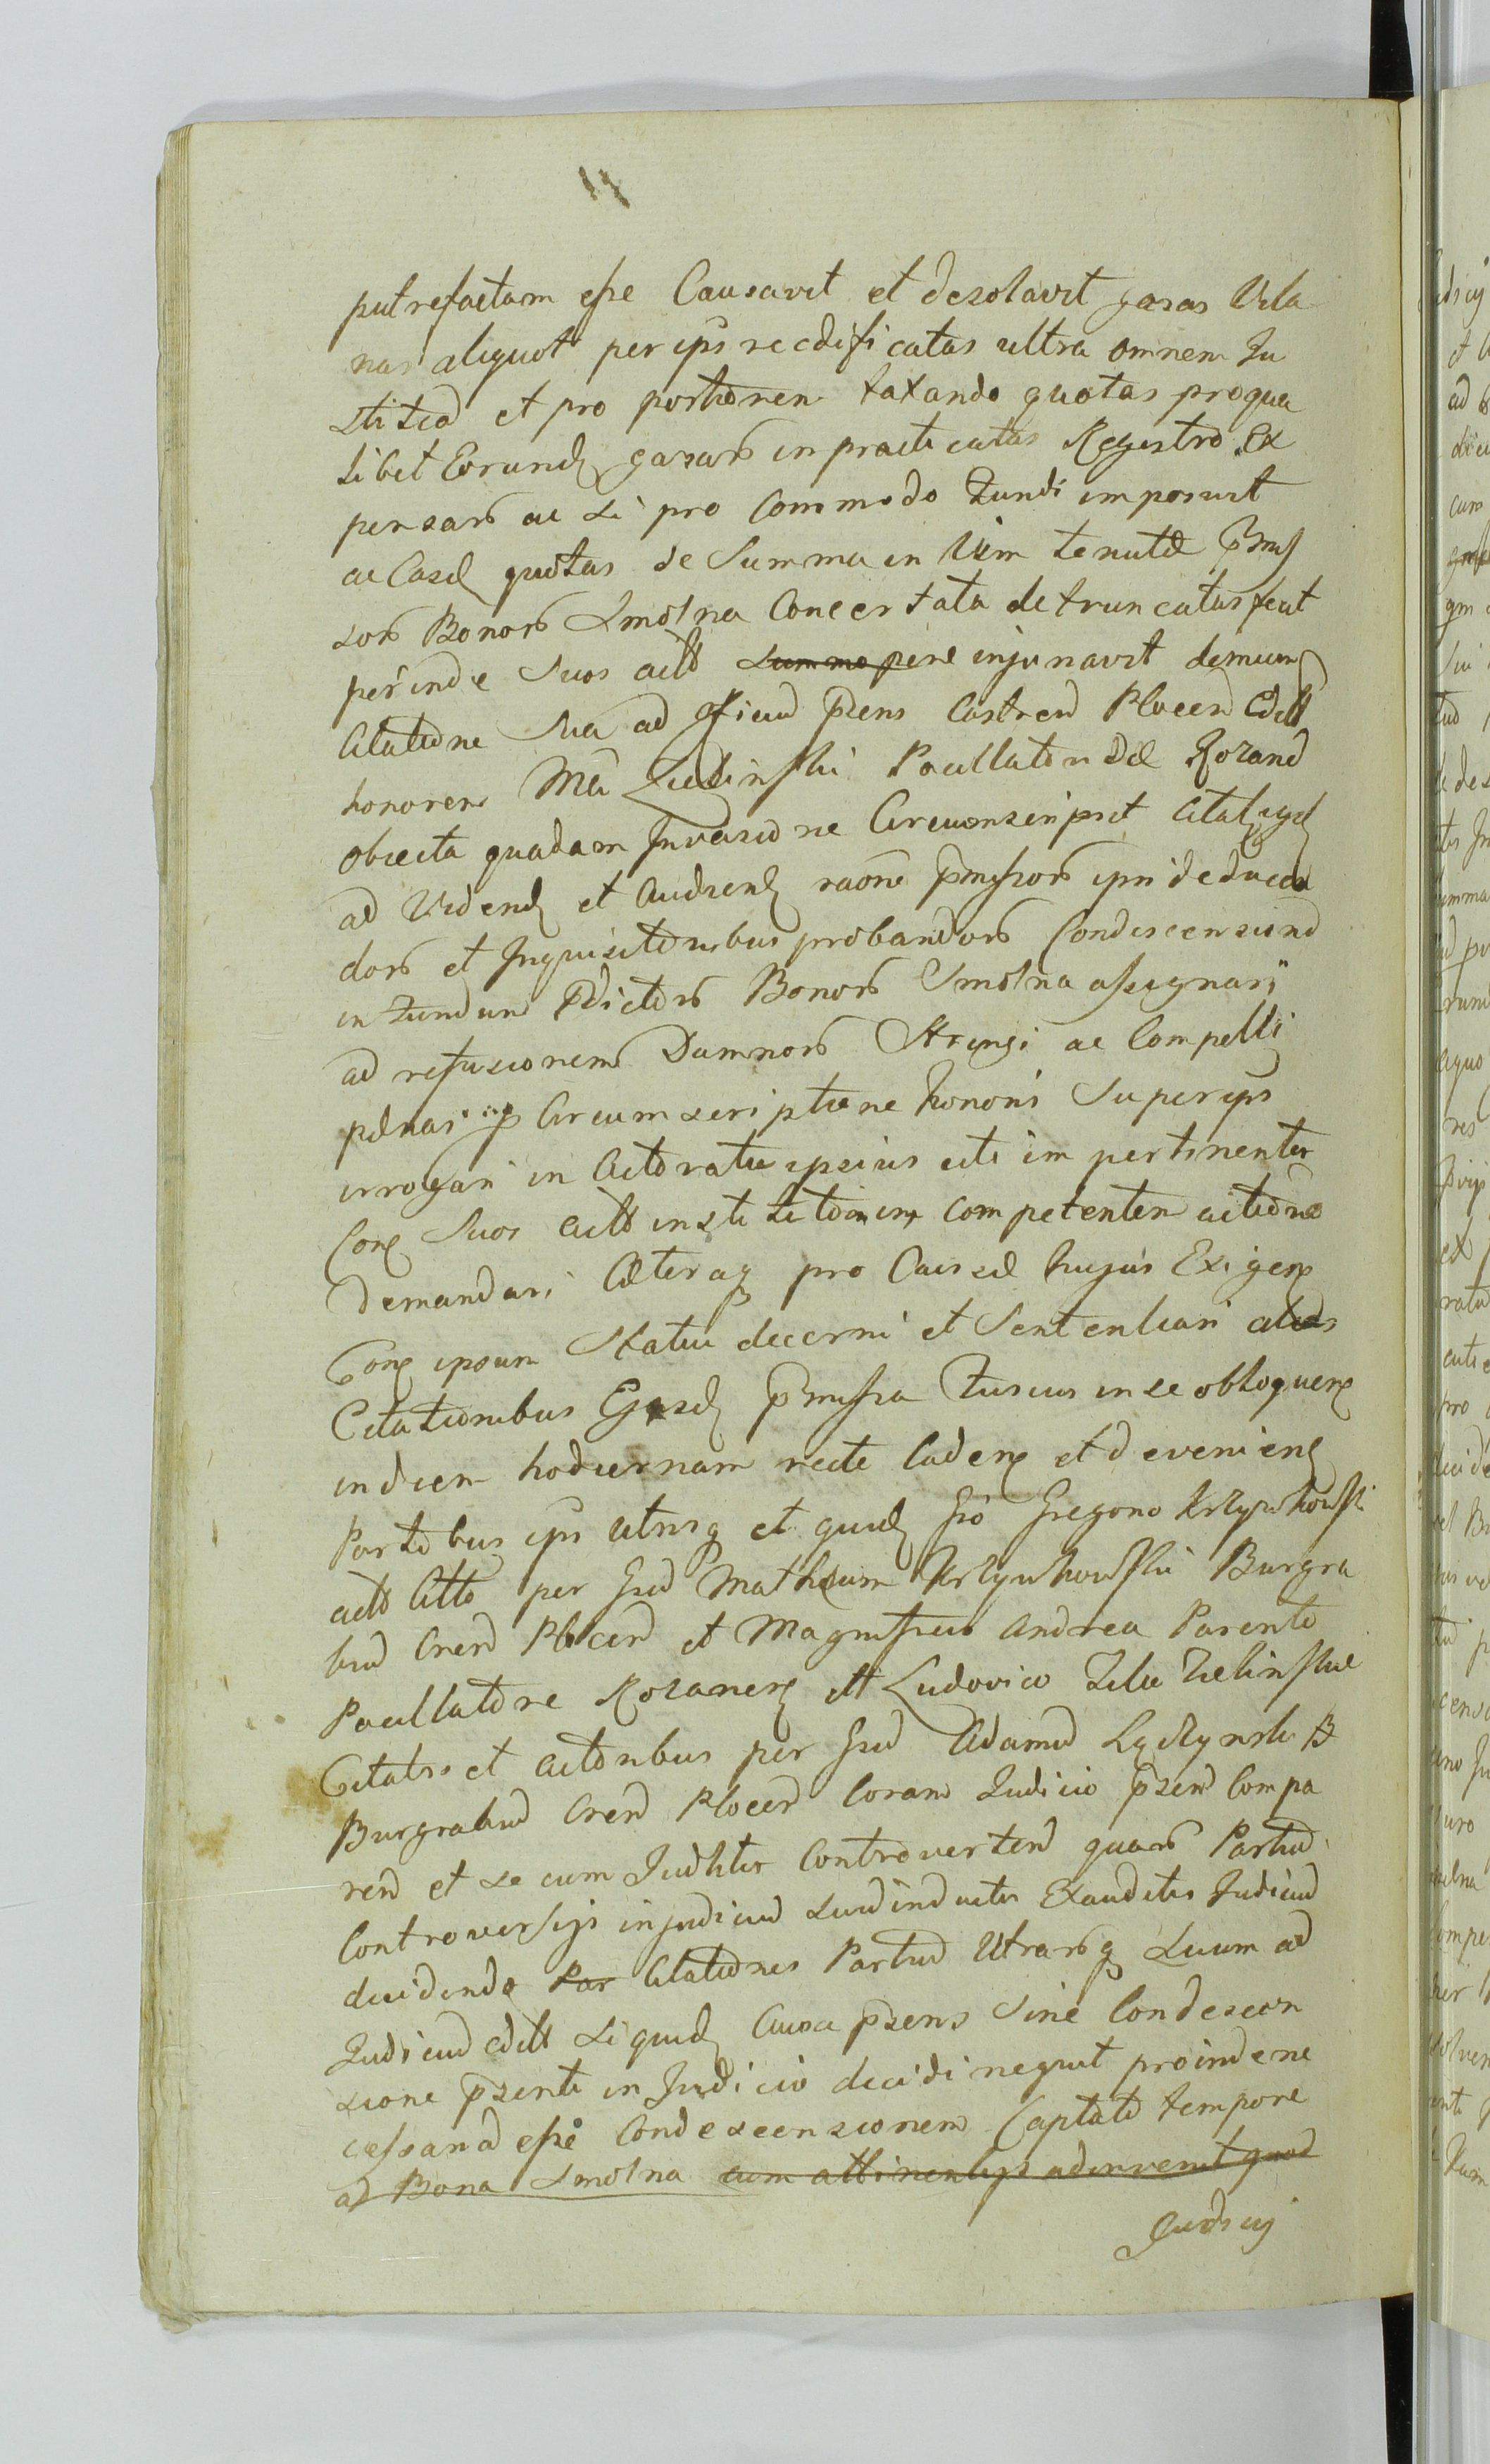 putrefactam esse Causavit et desolavit gazas Villa
nas aliquot per ips reedificatas ultra omnem Ju
stitiã et pro portionem taxando quotas pro qua
libet Eorund gazarũ in practicatas Registro Ex
pensarũ ac si pro Commodo Fundi imposuit
ac Easd quotas de Summa in Vim tenutæ pmis
sorũ Bonorũ Smolna Concertata detruncatas fecit
perinde Suos actt summopere injuriavit demum
Citatione Sua ad Officiũ pzens Castren Plocen Editt
honorem Mci Zielinski Pocillatoris Rozanẽ
obiecta quadam Invasione Circumscripsit Citat
ad Videnđ et Audiend raõne pmissorũ ipsi deducen
dorũ et Inquisitionibus probandorũ Condescensionẽ
in Fundum pdictorũ Bonorũ Smolna assignarj
ad refusionem Damnorũ Stringi ac Compelli
pænas p Circumscriptione honoris Super ips
irrogari in Actoratu ipsius uti impertinenter
Suos actt competentem actionẽ
Demandari Cæteraq pro Causæ hujus Exigen
ipsum Statui decerni et Sententiari
Citationibus Ejusd pmissa fusius in se obloquen
in diem hodiernam recte Caden et devenien
Partibus ips utrisq et quidẽ Gso Gregorio Krzyszkowski
actt Citto per Gsũ Mathæum Krzyszkowski Burgra
biũ Cren Plocen et Magnificis Andrea Parente
Pocillatore Rozanen ett Ludovico Filio Zielinskie
Citatis et Actoribus per Gsũ Adamũ
Burgrabiũ Cren Plocen Coram Judicio pzenti Compa
ren et secum Judltr Controverten quarũ Partiũ
Controversijs in judiciũ suũ inductis Exauditis Judiciũ
decidendo Par Citationes Partiũ Utrarũq suum ad
Judiciũ editt Siquid Causa pzens Sine Condescen
sione pzenti in Judicio decidi nequit proinde ne
cessariã esse Condescensionem Captato tempore
ad Bona Smolna cum attinentijs adinvenit quod
Judicij